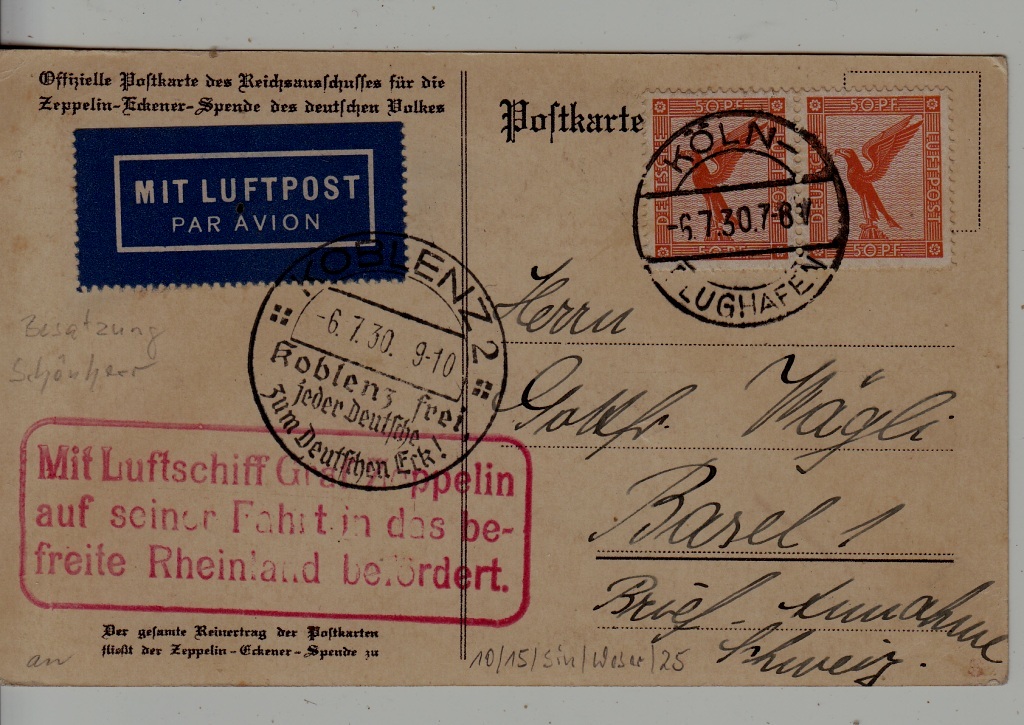 Offizielle Postkarte des Reichsausschusses für die
Zeppelin-Eckener-Spende des deutschen Volkes
MIT LUFTPOST
PAR AVION
Besatzung
Schönherr
KOBLENZ 2
-6.7.30. 9-10
Koblenz frei,
jeder Deutsche
zum Deutschen Eck!
Mit Luftschiff Graf Zeppelin
auf seiner Fahrt in das be-
freite Rheinland befördert.
Der gesamte Reinertrag der Postkarten
fließt der Zeppelin-Eckener-Spende zu
an
Postkarte
50 PF.
DEUTSCHE
50 PF.
50 PF.
DEUTSCHE
LUFTPOST
50 PF.
KÖLN-
-6.7.30.7-8
FLUGHAFEN
Herrn
Gottfr. Wägli
Basel 1
Brief-Annahme
Schweiz.
10/15/Sin/Weser/25